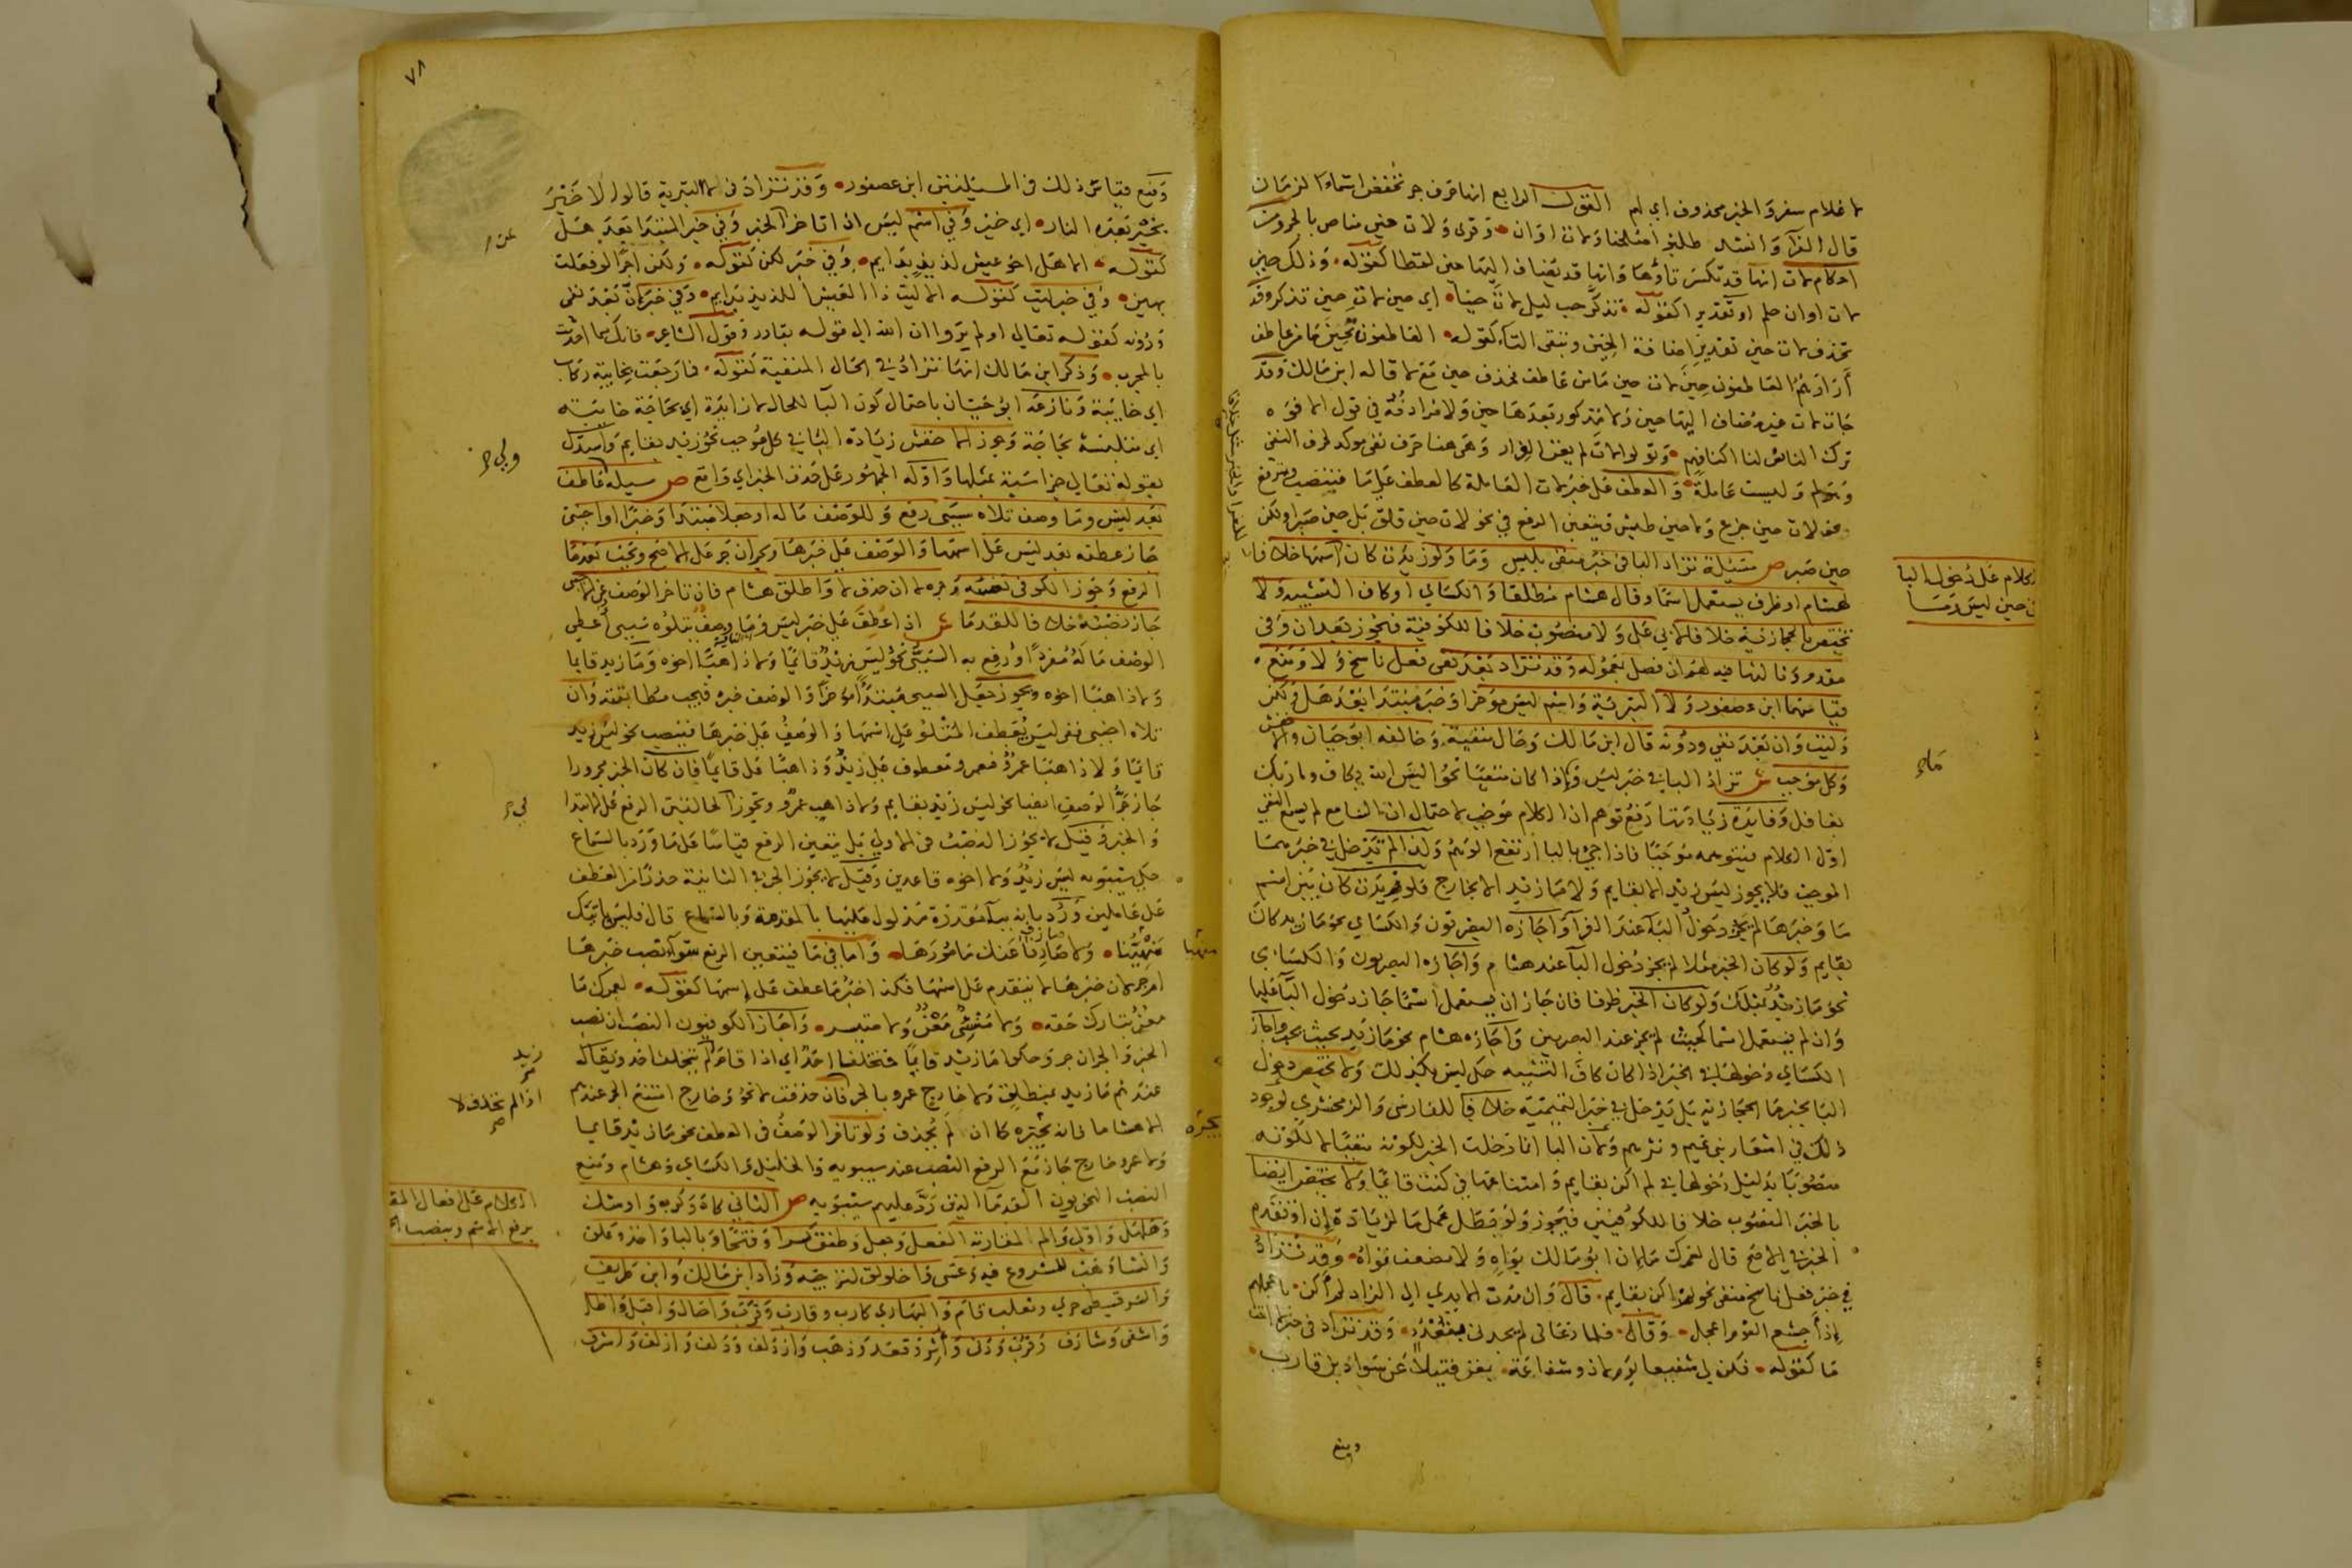 لا غلام سفر والخبر محذوف اي لهم القول الرابع انها حرف جر تخفض اسماء الزمان
قال الفرا وانشد طلبوا صلحنا ولات اوان وقرئ ولات حين مناص بالجر
احكام لات انها قد تكسر تاؤها وانها قد يضاف اليها حين لفظا كقوله وذلك حين
لات اوان حلم او تقديرا كقوله تذكر حب ليلى لات حينا اي حين لات حين تذكر وقد
تحذف لات حين تقدير اضافة الحين وتبقى التاء كقوله العاطفون تحين ما من عاطف
اراد هم العاطفون حين لات حين ما من عاطف فحذف حين مع لا قاله ابن مالك وقد
جات لات غير مضاف اليها حين ولا مذكور بعدها حين ولا مرادفه في قول الافوه
ترك الناس لنا اكنافهم وتولوا لات لم يغن الفرار وهي هنا حرف نفي موكد لحرف النفي
وهو لم وليست عاملة والعطف على خبر لات العاملة كالعطف على ما فينصب ويرفع
نحو لات حين جزع ولا حين طيش ويتعين الرفع في نحو لات حين قلق بل حين صبر او لكن
حين صبر ص مسئلة تزاد البا في خبر منفي بليس وما ولو زيدت كان اسمها خلافا
لهشام او ظرف يستعمل اسما وقال هشام مطلقا والكسائي او كاف التشبيه ولا
تختص بالحجازية خلافا لابي علي ولا منصوب خلافا للكوفية فيجوز بعد ان وفي
مقدم وثالثها فيه لهم ان فصل بمعموله وقد تزاد بعد نفي فعل ناسخ ولا ومنع
قياسهما ابن عصفور ولا التبرئية واسم ليس مؤخرا وخبر مبتدا بعد هل ولكن
وليت وان بعد نفي ودونه قال ابن مالك وحال منفية وخالفه ابو حيان والاخفش
وكل موجب ش تزاد البا في خبر ليس وما اذا كان منفيا نحو اليس الله بكاف وما ربك
بغافل وفايدة زيادتها رفع توهم ان الكلام موجب لاحتمال ان السامع لم يسمع النفي
اول الكلام فيتوهمه موجبا فاذا جي بالبا ارتفع الوهم ولذا لم تدخل في خبرهما
الموجب فلا يجوز ليس زيد الا بقايم ولا ما زيد الا بخارج فلو زيدت كان بين اسم
ما وخبرها لم يجز دخول الباء عند الفرا واجازه البصريون والكسائي نحو ما زيد كان
بقايم ولو كان الخبر مثلا لم يجز دخول البا عند هشام واجازه البصريون والكسائي
نحو ما زيد بمثلك ولو كان الخبر ظرفا فان جاز ان يستعمل اسما جاز دخول البا عليها
وان لم يستعمل اسما كحيث لم يجز عند البصريين واجازه هشام نحو ما زيد بحيث تحب واجاز
الكسائي دخولها في الخبر اذا كان كاف التشبيه حكى ليس بكذلك ولا تختص دخول
البا بخبر ما الحجازية بل تدخل في خبر التميمية خلافا للفارسي والزمخشري لوجود
ذلك في اشعار بني تميم ونثرهم ولان البا انما دخلت الخبر لكونه منفيا لا لكونه
منصوبا بدليل دخولها في لم اكن بقايم وامتناعها في كنت قائما ولا يختص ايضا
بالخبر المنصوب خلافا للكوفيين فيجوز ولو بطل عمل ما لزيادة ان او تقدم
الخبر في الاصح قال لعمرك ما ان ابو مالك بواه ولا بضعيف قواه وقد تزاد
في خبر فعل ناسخ منفي نحو لم اكن بقايم قال وان مدت الايدي الى الزاد لم اكن باعجلهم
اذ اجشع القوم اعجل وقال فلما دعاني لم يجدني بقعدد وقد تزاد في خبر لا
ما كقوله فكن لي شفيعا يوم لا ذو شفاعة بمغن فتيلا عن سواد بن قارب
ومنع
الكلام على دخول البا
في حين ليس وما
ما ح
٧٨
ومنع قياس ذلك في المسيلتين ابن عصفور وقد تزاد في لا التبرية قالوا لا خير
بخير بعده النار اي خير وفي اسم ليس اذا تاخر الخبر وفي خبر المبتدا بعد هل
كقوله الا هل اخو عيش لذيذ بدايم وفي خبر لكن كقوله ولكن اجرا لو فعلت
بهين وفي خبر ليت كقوله الا ليت ذا العيش اللذيذ بدايم وفي خبر ان بعد نفي
ودونه كقوله تعالى اولم يروا ان الله الى قوله بقادر وقول الشاعر فانك مما احدثت
بالمجرب وذكر ابن مالك انها تزاد في الحال المنفية كقوله فما رجعت بخايبة ركاب
اي خايبة ونازعه ابو حيان باحتمال كون البا للحال لا زايدة اي بحاجة خايبة
اي متلبسة بحاجة وجوز الاخفش زيادة البا في كل موجب نحو زيد بقايم واستدل
بقوله تعالى جزا سيية بمثلها واوله الجمهور على حذف الخبر اي واقع ص مسيلة عاطف
بعد ليس وما وصف تلاه سببي رفع وللوصف ما له او جعلا مبتدا وخبرا او اجنبي
جاز عطفه بعد ليس على اسمها والوصف على خبرها ويجر ان جر على الاصح ويجب بعد ما
الرفع وجوز الكوفي نصبه وجره لا ان حذف لا واطلق هشام فان تاخر الوصف عن الاجنبي
جاز نصبه خلافا للقدما ش اذا عطف على خبر ليس وما وصف يتلوه سببي اعطي
الوصف ما له مفردا ورفع به السببي نحو ليس زيد قائما ولا ذاهبا اخوه وما زيد قايما
ولا ذاهبا اخوه ويجوز جعل السببي مبتدا مؤخرا والوصف خبره فيجب مطابقته وان
تلاه اجنبي ففي ليس يعطف المتلو على اسمها والوصف على خبرها فينصب نحو ليس زيد
قائما ولا ذاهبا عمرو فعمرو معطوف على زيد وذاهبا على قائما فان كان الخبر مجرورا
جاز جر الوصف ايضا نحو ليس زيد بقايم ولا ذاهب عمرو ويجوز في الحالتين الرفع على الابتدا
والخبر وقيل لا يجوز النصب في الاولى بل يتعين الرفع قياسا على ما ورد بالسماع
حكى سيبويه ليس زيد ولا اخوه قاعدين وقيل لا يجوز الجر في الثانية حذرا من العطف
على عاملين ورد بانه بباء مقدرة مدلول عليها بالمقدمة وبالسماع قال فليس باتيك
منهيها ولا صارف عنك مامورها واما في ما فيتعين الرفع سواء نصب خبرها
او جر لان خبرها لا يتقدم على اسمها فكذا خبر ما عطف على اسمها كقوله لعمرك ما
معن بتارك حقه ولا منسئ معن ولا متيسر واجاز الكوفيون النصب ان نصب
الخبر والجر ان جر وحكوا ما زيد قايما فمتخلفا احد اي اذا قام لم يتخلف احد ويقال
عندهم ما زيد بمنطلق ولا خارج عمرو بالجر فان حذفت لا نحو وخارج امتنع الجر عندهم
الا هشاما فانه يجيزه كما ان لم تحذف ولو تاخر الوصف في العطف نحو ما زيد قايما
ولا عمرو خارج جاز مع الرفع النصب عند سيبويه والخليل والكسائي وهشام ومنع
النصب النحويون القدما الذين رد عليهم سيبويه ص الثاني كاد وكرب واوشك
وهلهل واولى والم لمقاربة الفعل وجعل وطفق كسرا وفتحا وبالبا واخذ وعلق
وانشا وهب للشروع فيه وعسى واخلولق لترجيه وزاد ابن مالك وابن طريف
والسرقسطي حري وثعلب قام والبهاري كارب وقارب وقرب واحال واقبل واظل
واشفى وشارف وقرب ودنى واثر وقعد وذهب وازدلف ودلف وازلف واشرف
عن
منهيا
زيد
اذا لم تحذف لا
يجيزه
الكلام على افعال المقا
برفع الاسم وينصب الخ